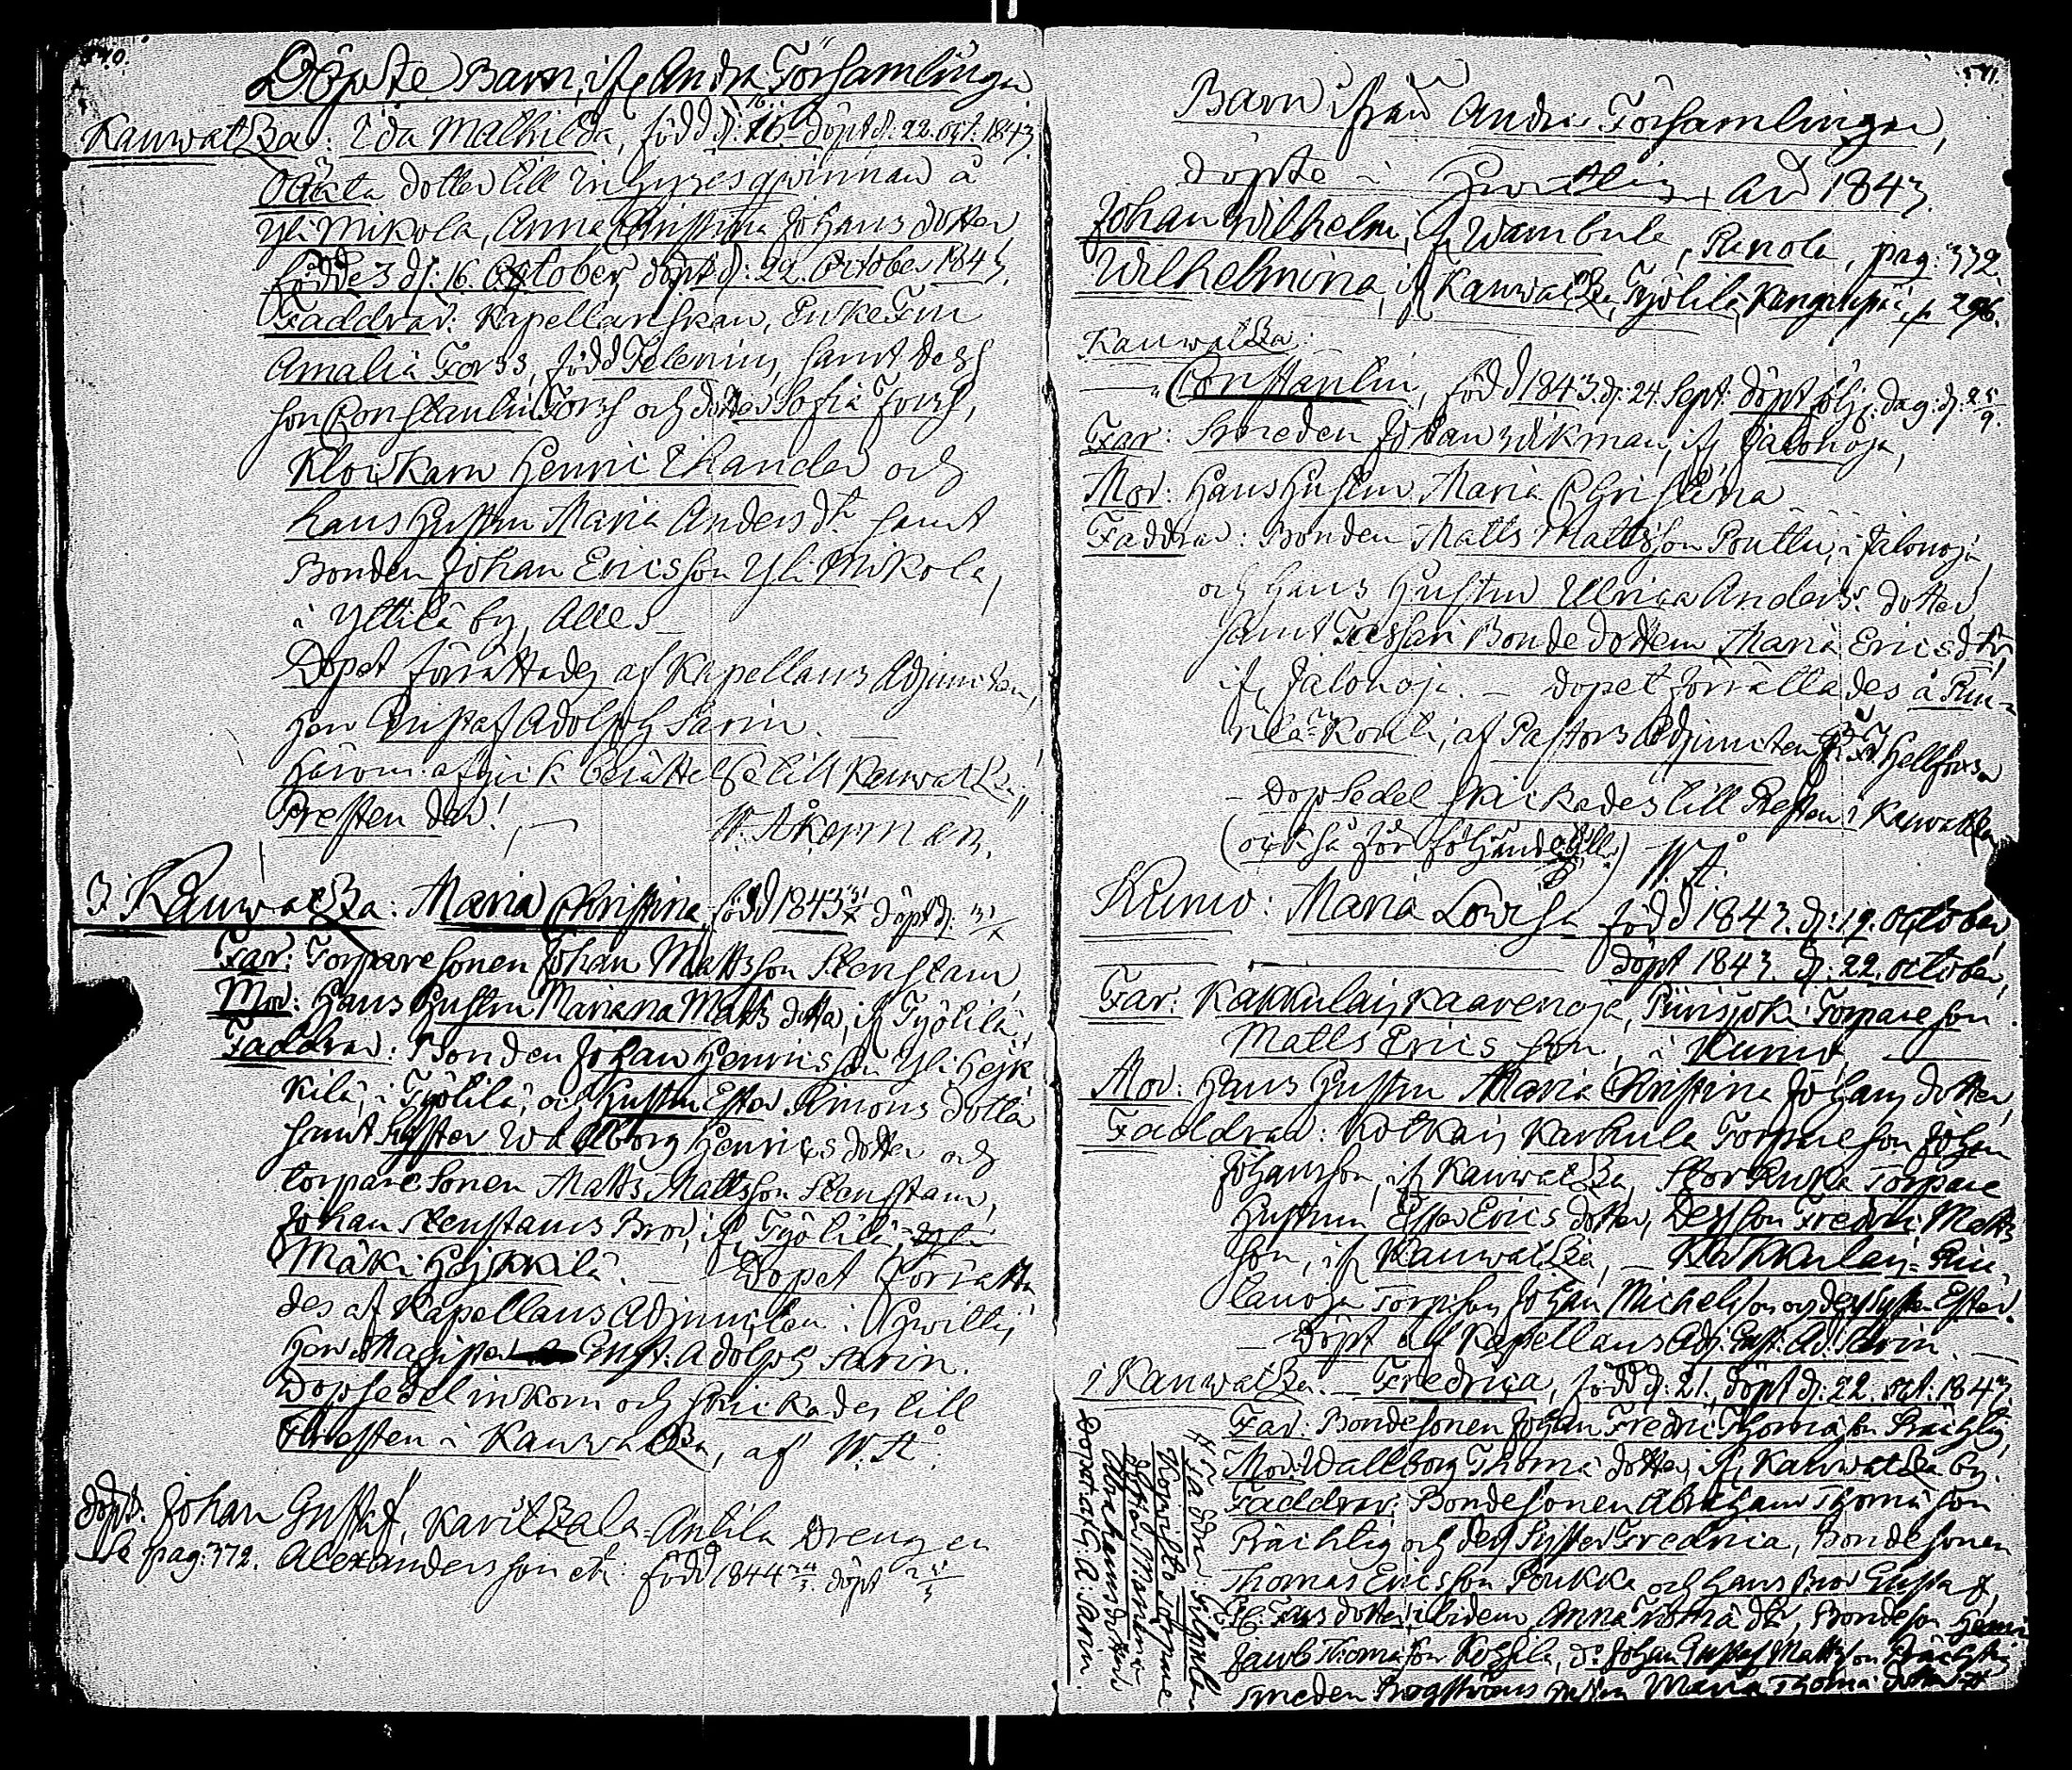 Döpte Barn, ifr. Andra Församlingar
Kauwatza: Ida Mathilda, född d: 16. döpt d. 22. oct. 1843.
Oäkta dotter till Inhyses qwinnan å
Yli Mikola, Anna Christina Johans dotter
född d: 16. October, döpt d: 22. October 1843.
Faddrar: Kapellanskan, Enke Fru
Amalia Forss, född Idelenius, samt dess
son Constantin Forss och dotter Sofia Forss,
Klockarn Henric Thander och
hans Hustru Maria Anders dr. samt
Bonden Johan Ericsson Yli Mikola,
i Yttilä by, Alles
Dopet förrättades af Kapellans Adjuncten,
Herr Gustaf Adolph Sarin. —
Härom afgick berättelse till Kauwatza,
Presten der! — W. Åkerman.
3. Kauwatza: Maria Christina född 1843 31/X döpt d: 31/X
Far: Torparesonen Johan Mattsson Stenstam,
Mor: Hans Hustru Mariana Matts dotter, ifr. Työlilä,
Faddrar: Bonden Johan Henricsson Yli Hejk
kilä, i Työlilä, och Hustru Ester Simons dotter
samt Syster Wallborg Henrics dotter och
torparesonen Matts Mattsson Stenstam,
Johan Stenstams Bror, ifr. Työlilä,
Mäki Hejkkilä. — Dopet förrätta
des af Kapellans Adjuncten i Hwittis
Herr Magister Gust. Adolph Sarin.
Dopsedel inkom och skickades till
Presten i Kauwatza, af W. Å.
döpt. Johan Gustaf, Karitzala Antila Drengen
Se pag: 372. Alexandersson etc: född 1844 24/3. döpt 25/3
Barn ifrån Andra Församlingar,
döpte i Hwittis, År 1843.
Johan Wilhelm, ifr. Wambula, Panola, pag: 332.
Wilhelmina, ifr. Kauwatza, Työlilä, p. 296.
Kauwatza:
Constantin, född 1843. d: 24 Sept. döpt följ. dag: d: 25/9.
Far: Smeden Johan Wikman, ifr. Jalonoja,
Mor: Hans Hustru Maria Christina
Faddrar: Bonden Matts Mattsson Pouttu, i Jalonoja
och hans Hustru Ulrica Anders dotter
samt Tassari Bondedottern Maria Ericsdtr
ifr. Jalonoja. — Dopet förrättades å
af Pastors Adjuncten Hellfors
— Dopsedel skickades till Presten i Kauwatza
(också för följande) W. Å.
Kumo: Maria Lovisa född 1843. d: 19. October,
döpt 1843. d: 22. October,
Far: Kakkulais Kaarenoja, Torpareson
Matts Ericsson, i Kumo, —
Mor: Hans Hustru Maria Christina Johans dotter,
Faddrar: Karkula Torpareson Johan
Johansson, ifr. Kauwatza, Storkuka Torpare
Hustrun Ester Erics dotter, Dess son Fredric Matts
son, ifr. Kauwatza, — Kakkulais
Torp. son Johan Michelsson och dess Syster Ester.
— Döpt af Kapellans Adj. Gust. Ad. Sarin. —
i Kauwatza. — Fredrica, född d: 21, döpt d: 22. oct. 1843,
Far: Bondesonen Johan Fredric Thomasson Prächtig,
Mor: Wallborg Thomä dotter, ifr. Kauwatza by.
Faddrar: Bondesonen Abraham Thomäson
Prächtig och dess Syster Fredrica, Bondesonen
Thomas Ericsson Poukka och hans Bror Gustaf,
dotter, ibidem, Anna Thomä dr, Bondeson Henric
Jacob Thomäson Kossila, do Johan Gustaf Mattsson Prächtig
Smeden Hustru Maria Thomä dotter #
# Från
Torpare
Abrahams dotter
Dopet af G. A. Sarin.